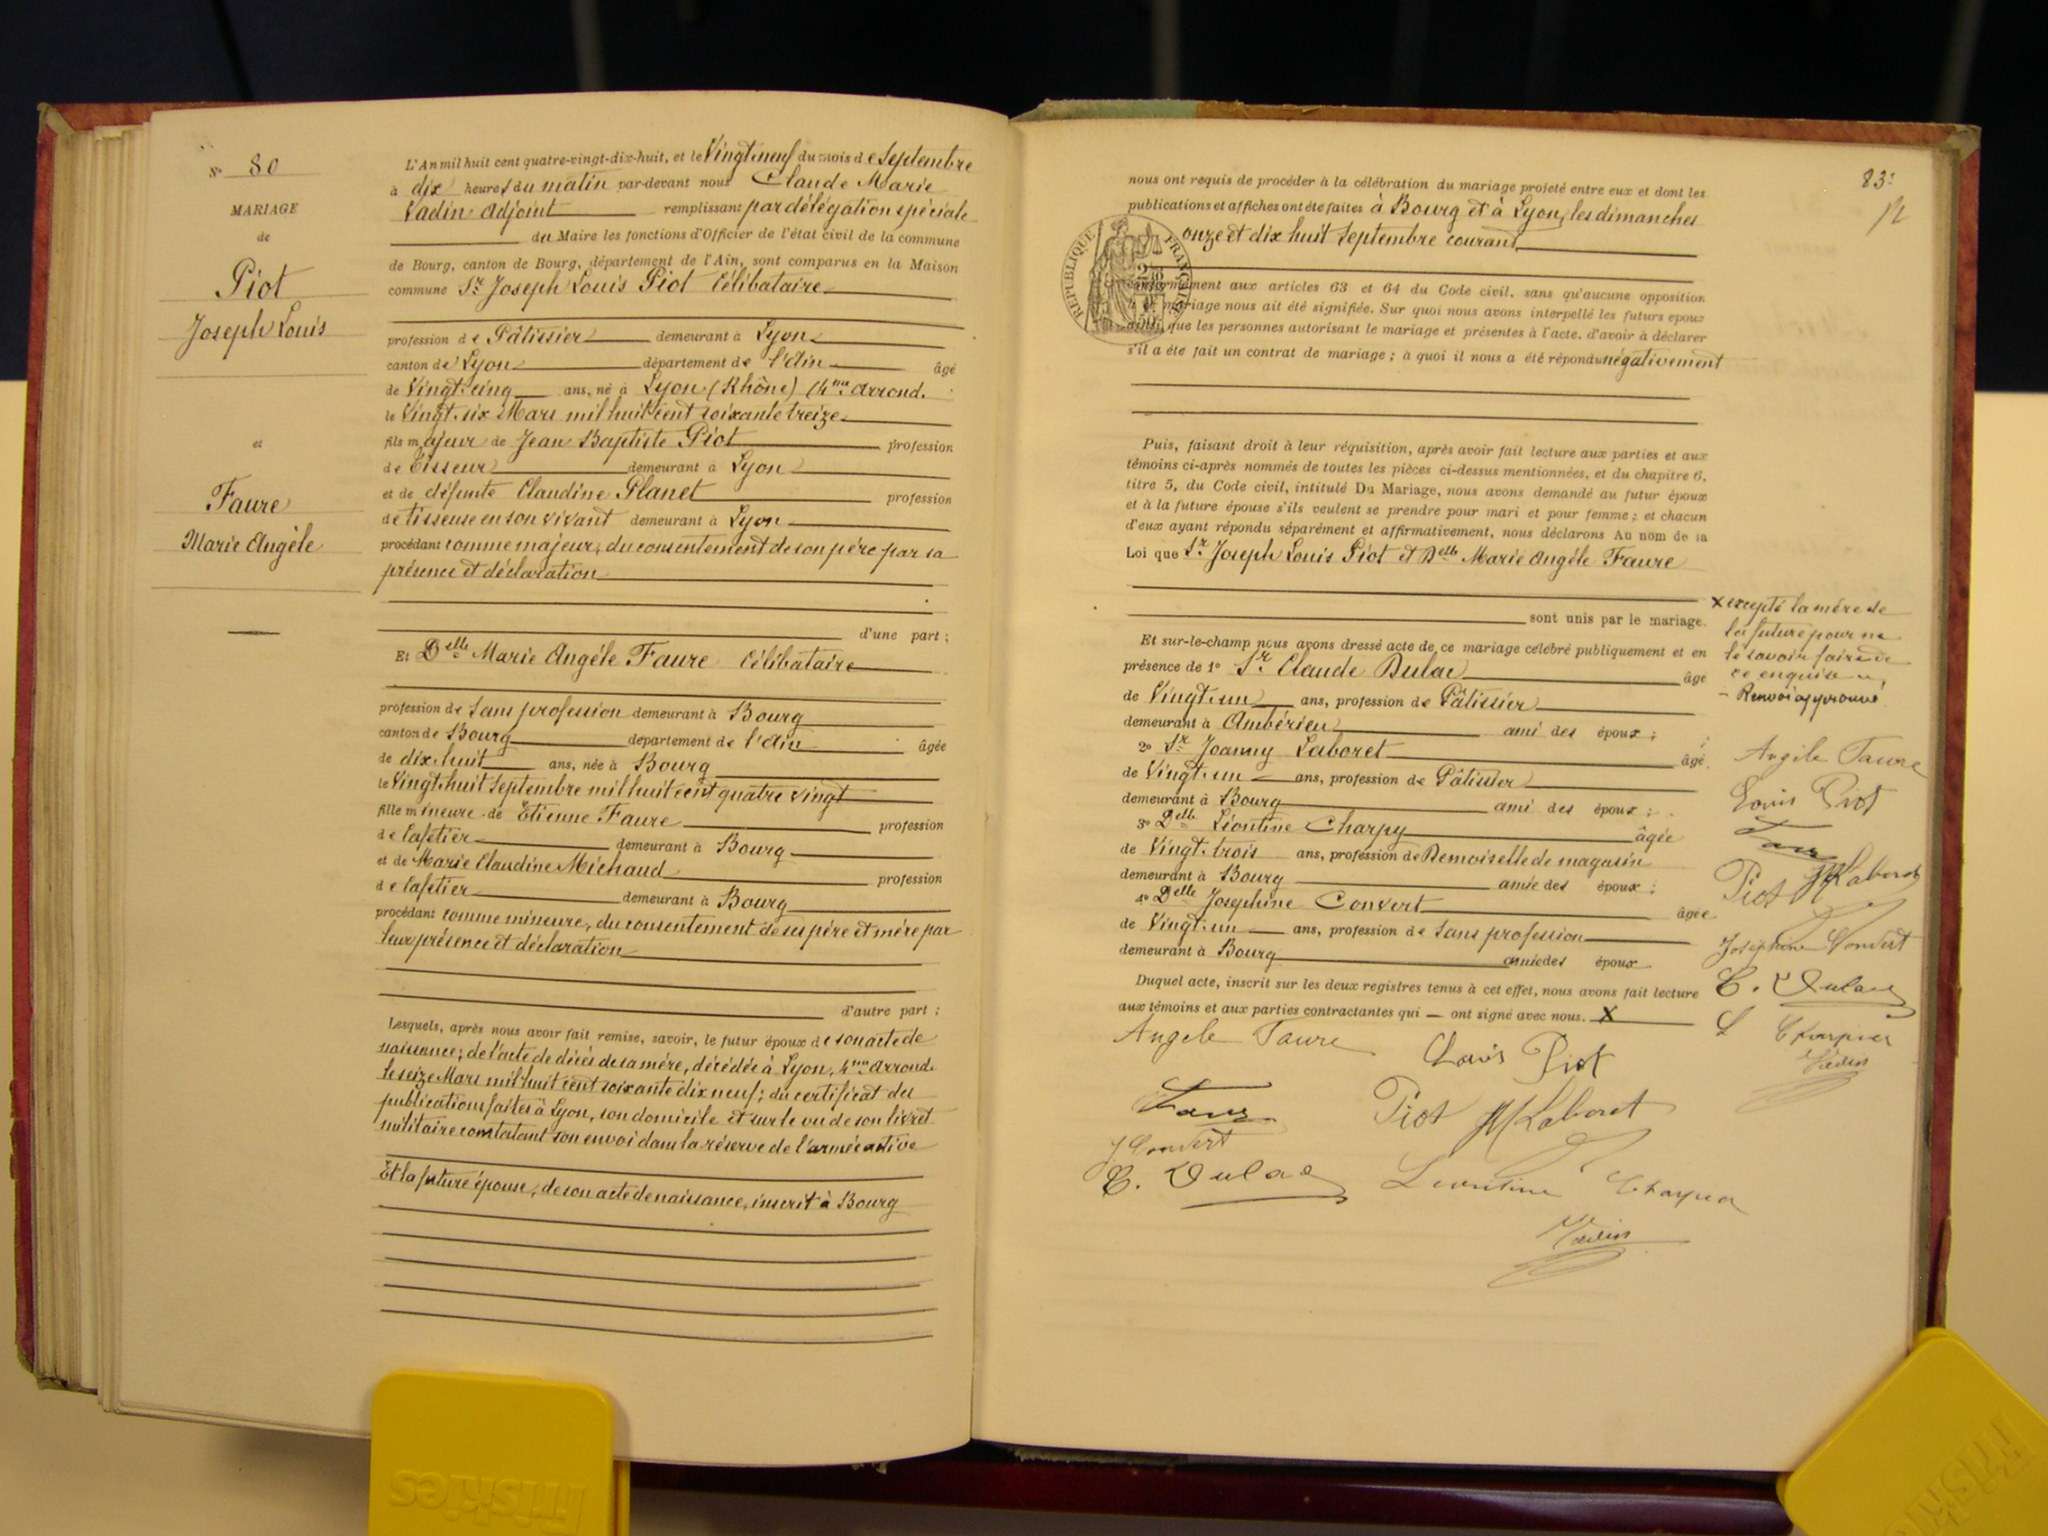 N° 80
MARIAGE
de
Piot
Joseph Louis
et
Faure
Marie Angèle
L'An mil huit cent quatre-vingt-dix-huit, et le Vingt neuf du mois de Septembre
à dix heures du matin par-devant nous Claude Marie
Vadin Adjoint remplissant par délégation spéciale
du Maire les fonctions d'Officier de l'état civil de la commune
de Bourg, canton de Bourg, département de l'Ain, sont comparus en la Maison
commune Sr Joseph Louis Piot Célibataire
profession de Pâtissier demeurant à Lyon
canton de Lyon département de l'Ain âgé
de Vingt-cinq ans, né à Lyon (Rhône) (4me arrond.
le Vingt-six Mars mil huit cent soixante treize
fils majeur de Jean Baptiste Piot profession
de Tisseur demeurant à Lyon
et de défunte Claudine Planet profession
de tisseuse en son vivant demeurant à Lyon
procédant comme majeur, du consentement de son père par sa
présence et déclaration
d'une part ;
Et Delle Marie Angèle Faure Célibataire
profession de Sans profession demeurant à Bourg
canton de Bourg département de l'Ain âgée
de dix-huit ans, née à Bourg
le Vingt-huit Septembre mil huit cent quatre vingt
fille mineure de Etienne Faure profession
de Cafetier demeurant à Bourg
et de Marie Claudine Michaud profession
de Cafetier demeurant à Bourg
procédant comme mineure, du consentement de ses père et mère par
leur présence et déclaration
d'autre part ;
Lesquels, après nous avoir fait remise, savoir, le futur époux de son acte de
naissance; de l'acte de décès de sa mère, décédée à Lyon, 4me arrond.
le seize Mars mil huit cent soixante dix neuf; du certificat des
publications faites à Lyon, son domicile et sur le vu de son livret
militaire constatant son envoi dans la réserve de l'armée active
Et la future épouse, de son acte de naissance, inscrit à Bourg
83
nous ont requis de procéder à la célébration du mariage projeté entre eux et dont les
publications et affiches ont été faites à Bourg et à Lyon, les dimanches
onze et dix huit Septembre courant
RÉPUBLIQUE FRANÇAISE
conformément aux articles 63 et 64 du Code civil, sans qu'aucune opposition
à ce mariage nous ait été signifiée. Sur quoi nous avons interpellé les futurs époux
ainsi que les personnes autorisant le mariage et présentes à l'acte, d'avoir à déclarer
s'il a été fait un contrat de mariage ; à quoi il nous a été répondu négativement
Puis, faisant droit à leur réquisition, après avoir fait lecture aux parties et aux
témoins ci-après nommés de toutes les pièces ci-dessus mentionnées, et du chapitre 6,
titre 5, du Code civil, intitulé Du Mariage, nous avons demandé au futur époux
et à la future épouse s'ils veulent se prendre pour mari et pour femme ; et chacun
d'eux ayant répondu séparément et affirmativement, nous déclarons Au nom de la
Loi que Sr Joseph Louis Piot et Delle Marie Angèle Faure
sont unis par le mariage.
Et sur-le-champ nous avons dressé acte de ce mariage célébré publiquement et en
présence de 1° Sr Claude Dulac âgé
de Vingt-un ans, profession de Pâtissier
demeurant à Ambérieu ami des époux ;
2° Sr Joanny Laboret âgé
de Vingt-un ans, profession de Pâtissier
demeurant à Bourg ami des époux ;
3° Delle Léontine Charpy âgée
de Vingt-trois ans, profession de Demoiselle de magasin
demeurant à Bourg amie des époux ;
4° Delle Joséphine Convert âgée
de Vingt-un ans, profession de Sans profession
demeurant à Bourg amie des époux
Duquel acte, inscrit sur les deux registres tenus à cet effet, nous avons fait lecture
aux témoins et aux parties contractantes qui — ont signé avec nous. X
Angèle Faure Louis Piot
Faure Piot Laboret
J Convert
C. Dulac Léontine
Vadin
X excepté la mère de
la future pour ne
le savoir faire de
ce enquise
Renvoi approuvé
Angèle Faure
Louis Piot
Faure
Piot Laboret
Joséphine Convert
C. Dulac
L
Vadin
Friskies